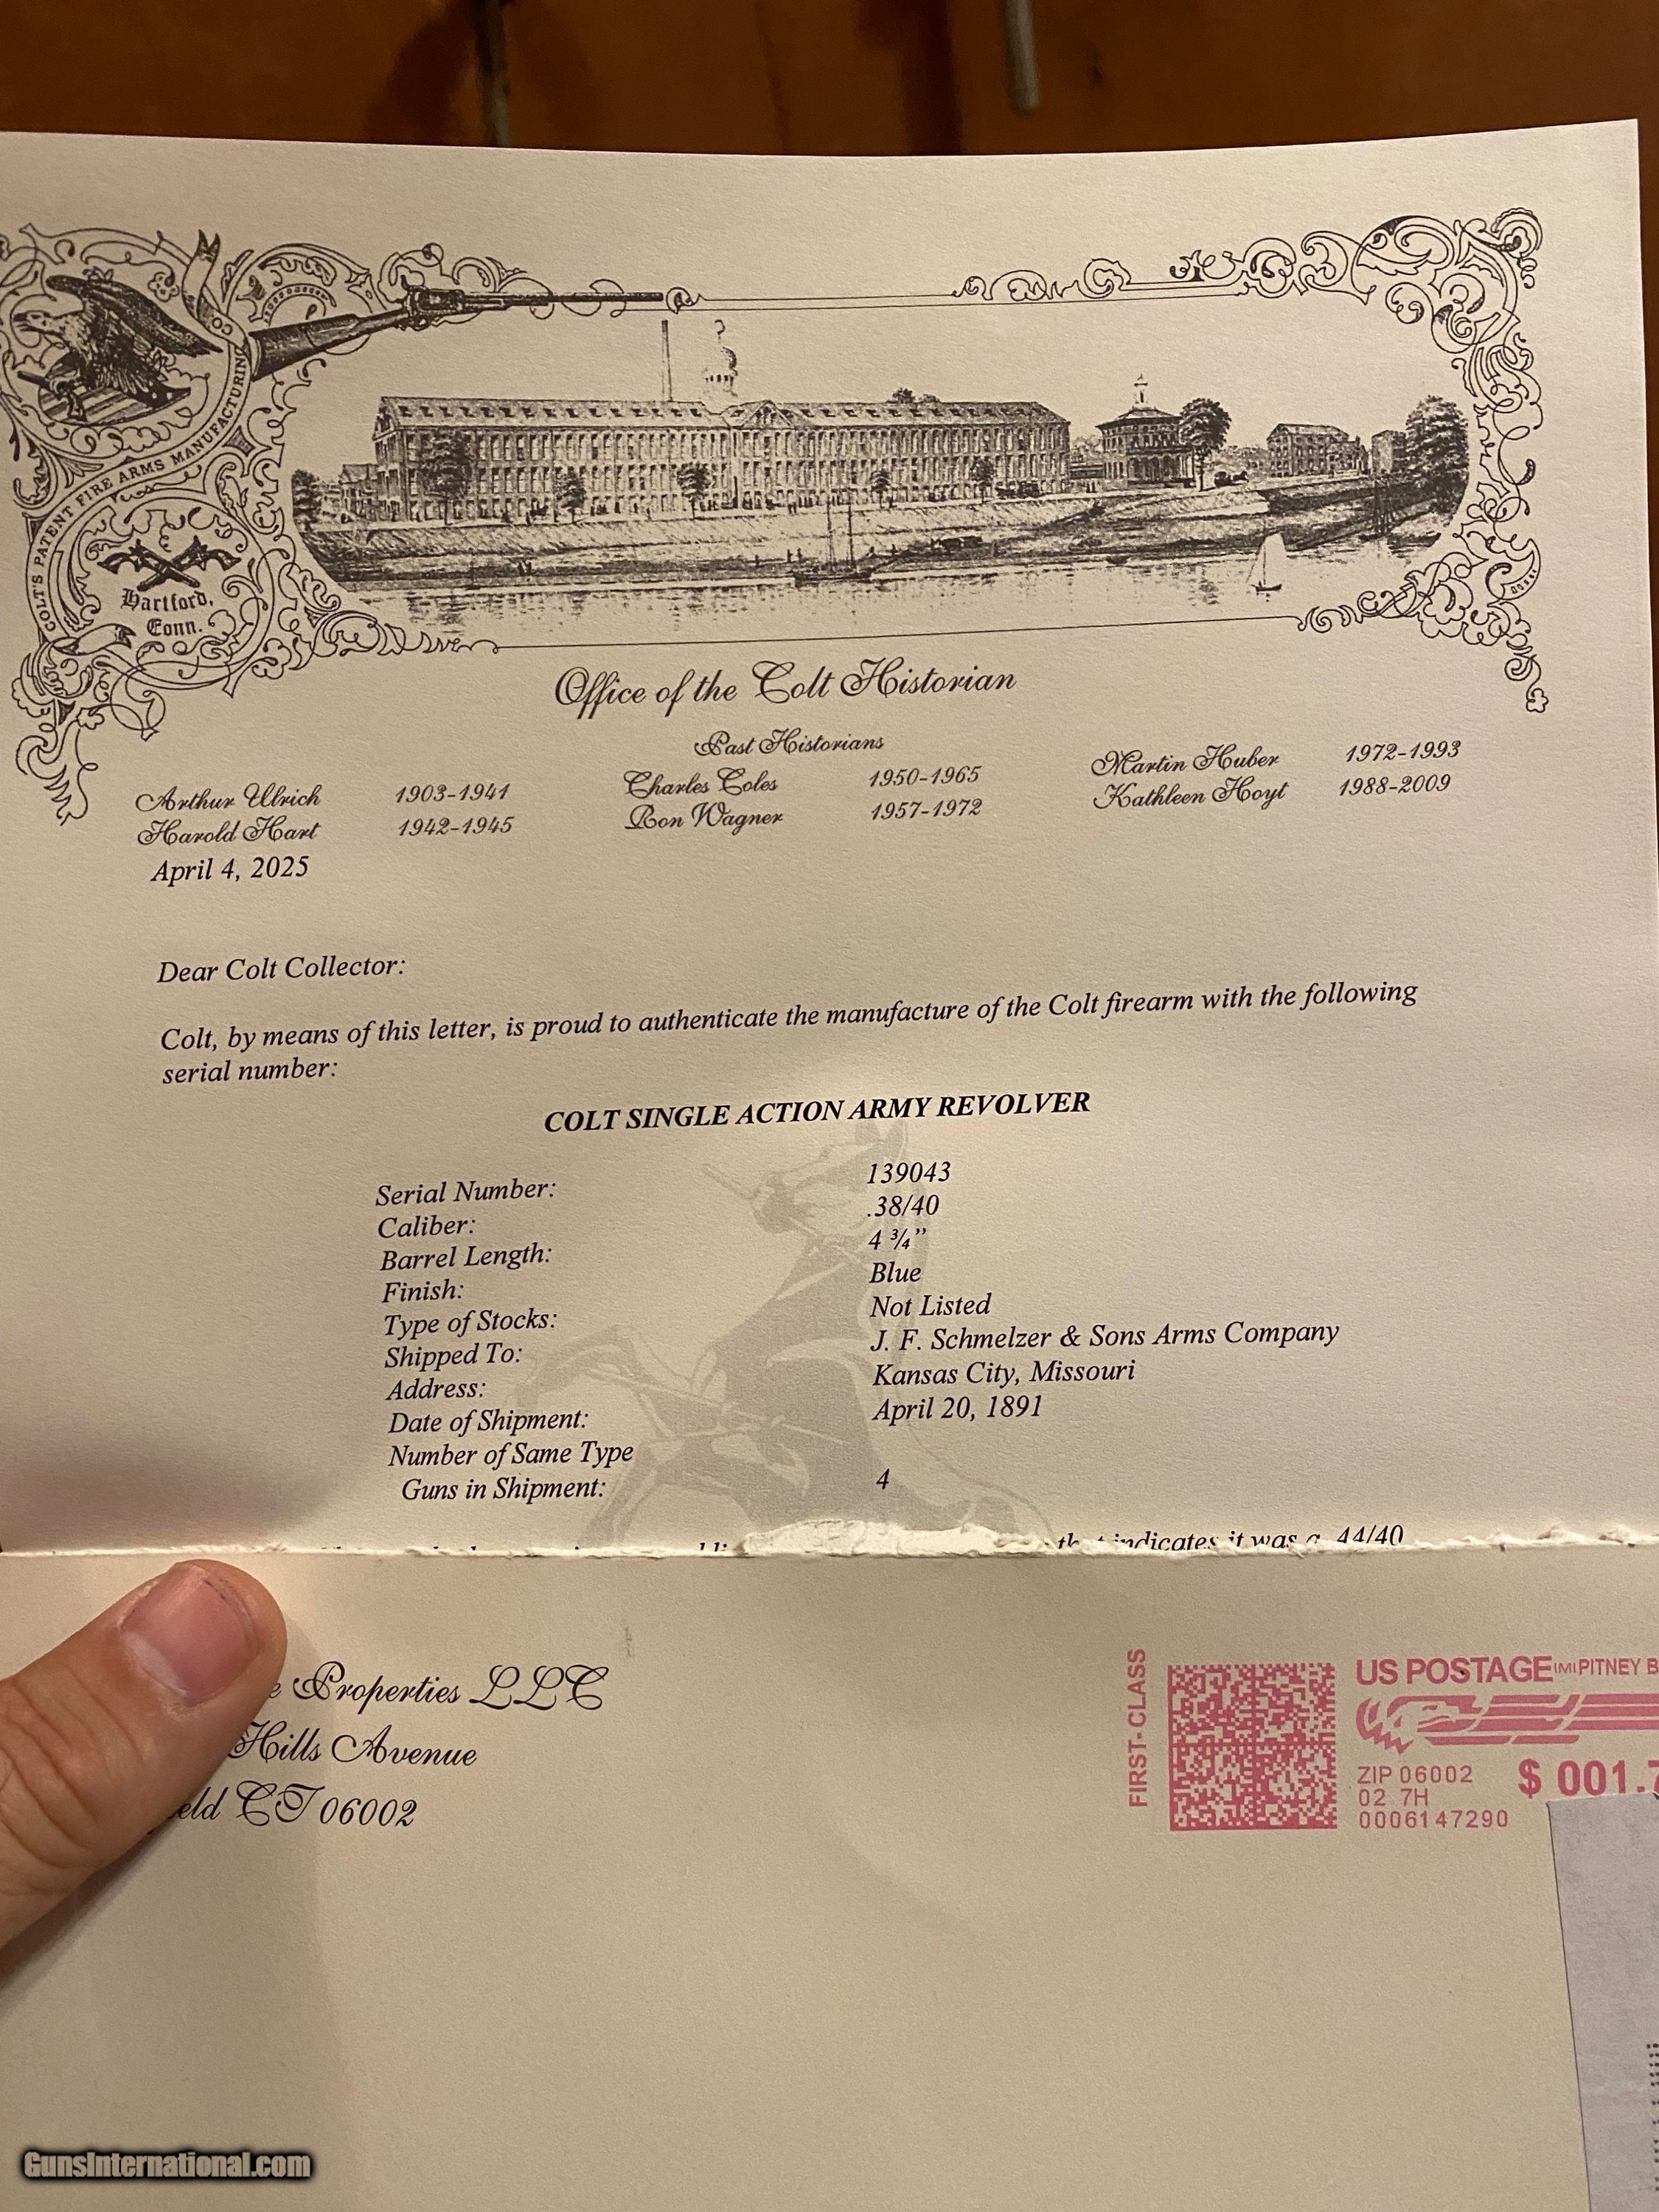 CO
COLT'S PATENT FIRE ARMS MANUFACTURING
Hartford,
Conn.
Office of the Colt Historian
Past Historians
Arthur Ulrich 1903-1941 Charles Coles 1950-1965 Martin Huber 1972-1993
Harold Hart 1942-1945 Ron Wagner 1957-1972 Kathleen Hoyt 1988-2009
April 4, 2025
Dear Colt Collector:
Colt, by means of this letter, is proud to authenticate the manufacture of the Colt firearm with the following
serial number:
COLT SINGLE ACTION ARMY REVOLVER
Serial Number: 139043
Caliber: .38/40
Barrel Length: 4 ¾”
Finish: Blue
Type of Stocks: Not Listed
Shipped To: J. F. Schmelzer & Sons Arms Company
Address: Kansas City, Missouri
Date of Shipment: April 20, 1891
Number of Same Type
Guns in Shipment: 4
indicates it was a .44/40
Properties LLC
Hills Avenue
CT 06002
FIRST-CLASS
US POSTAGE IMI PITNEY B
ZIP 06002 $ 001.7
02 7H
0006147290
GunsInternational.com